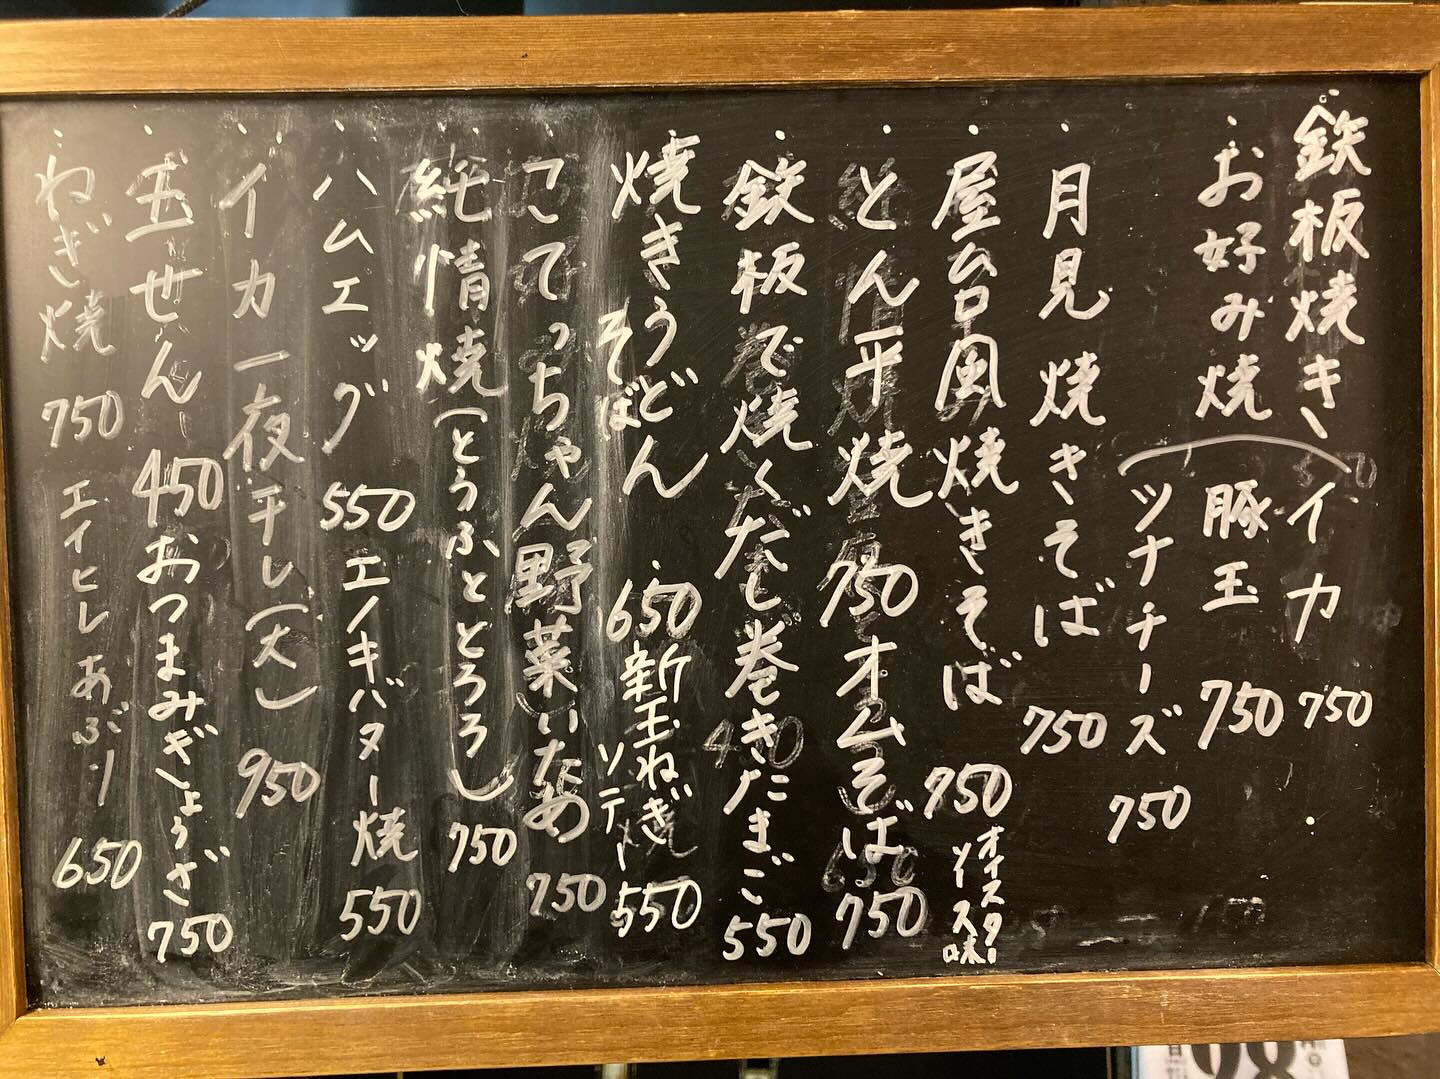 ・鉄板焼き、イカ 750
・お好み焼 豚玉 750
ツナチーズ 750
・月見焼きそば 750
・屋台風焼きそば 750 オイスターソース味
・とん平焼 750 オムそば 750
・鉄板で焼くだし巻きたまご 550
・焼きうどん そば 650 新玉ねぎソテー 550
・こてっちゃん野菜いため 750
・純情焼(とうふととろろ) 750
・ハムエッグ 550 エノキバター焼 550
・イカ一夜干し(大) 950
・玉せん 450 おつまみぎょうざ 750
・ねぎ焼 750 エイヒレあぶり 650